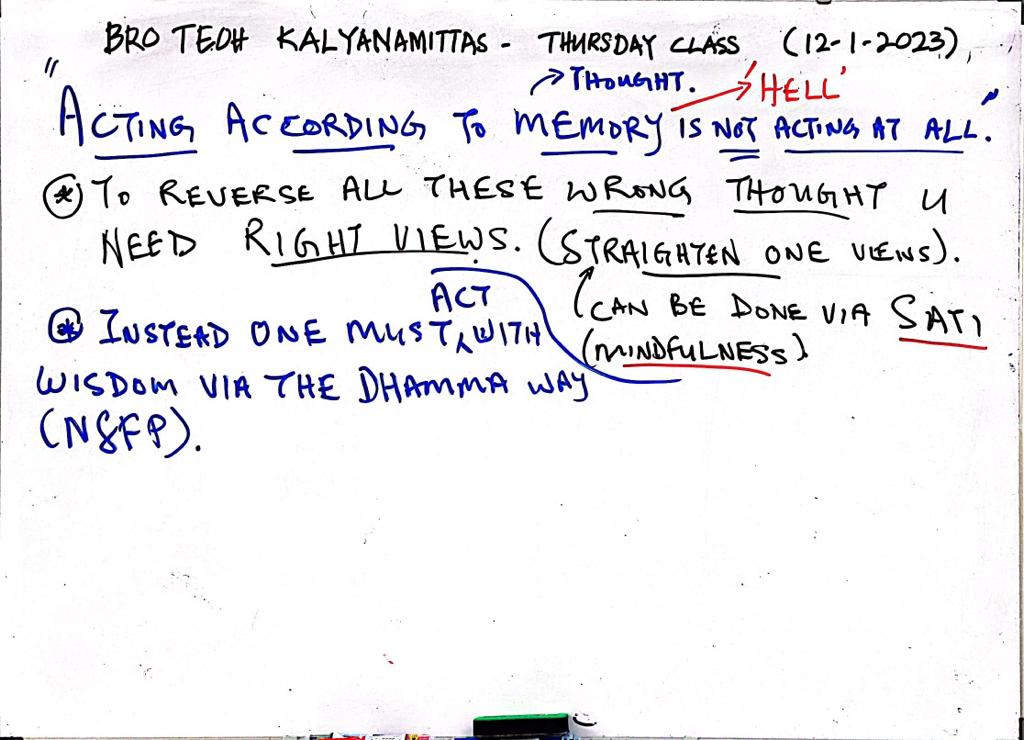 BRO TEOH KALYANAMITTAS - THURSDAY CLASS (12-1-2023),
THOUGHT. 'HELL'
"ACTING ACCORDING TO MEMORY IS NOT ACTING AT ALL."
* TO REVERSE ALL THESE WRONG THOUGHT U
NEED RIGHT VIEWS. (STRAIGHTEN ONE VIEWS).
(CAN BE DONE VIA SATI
(MINDFULNESS).
ACT
* INSTEAD ONE MUST WITH
WISDOM VIA THE DHAMMA WAY
(N8FP).